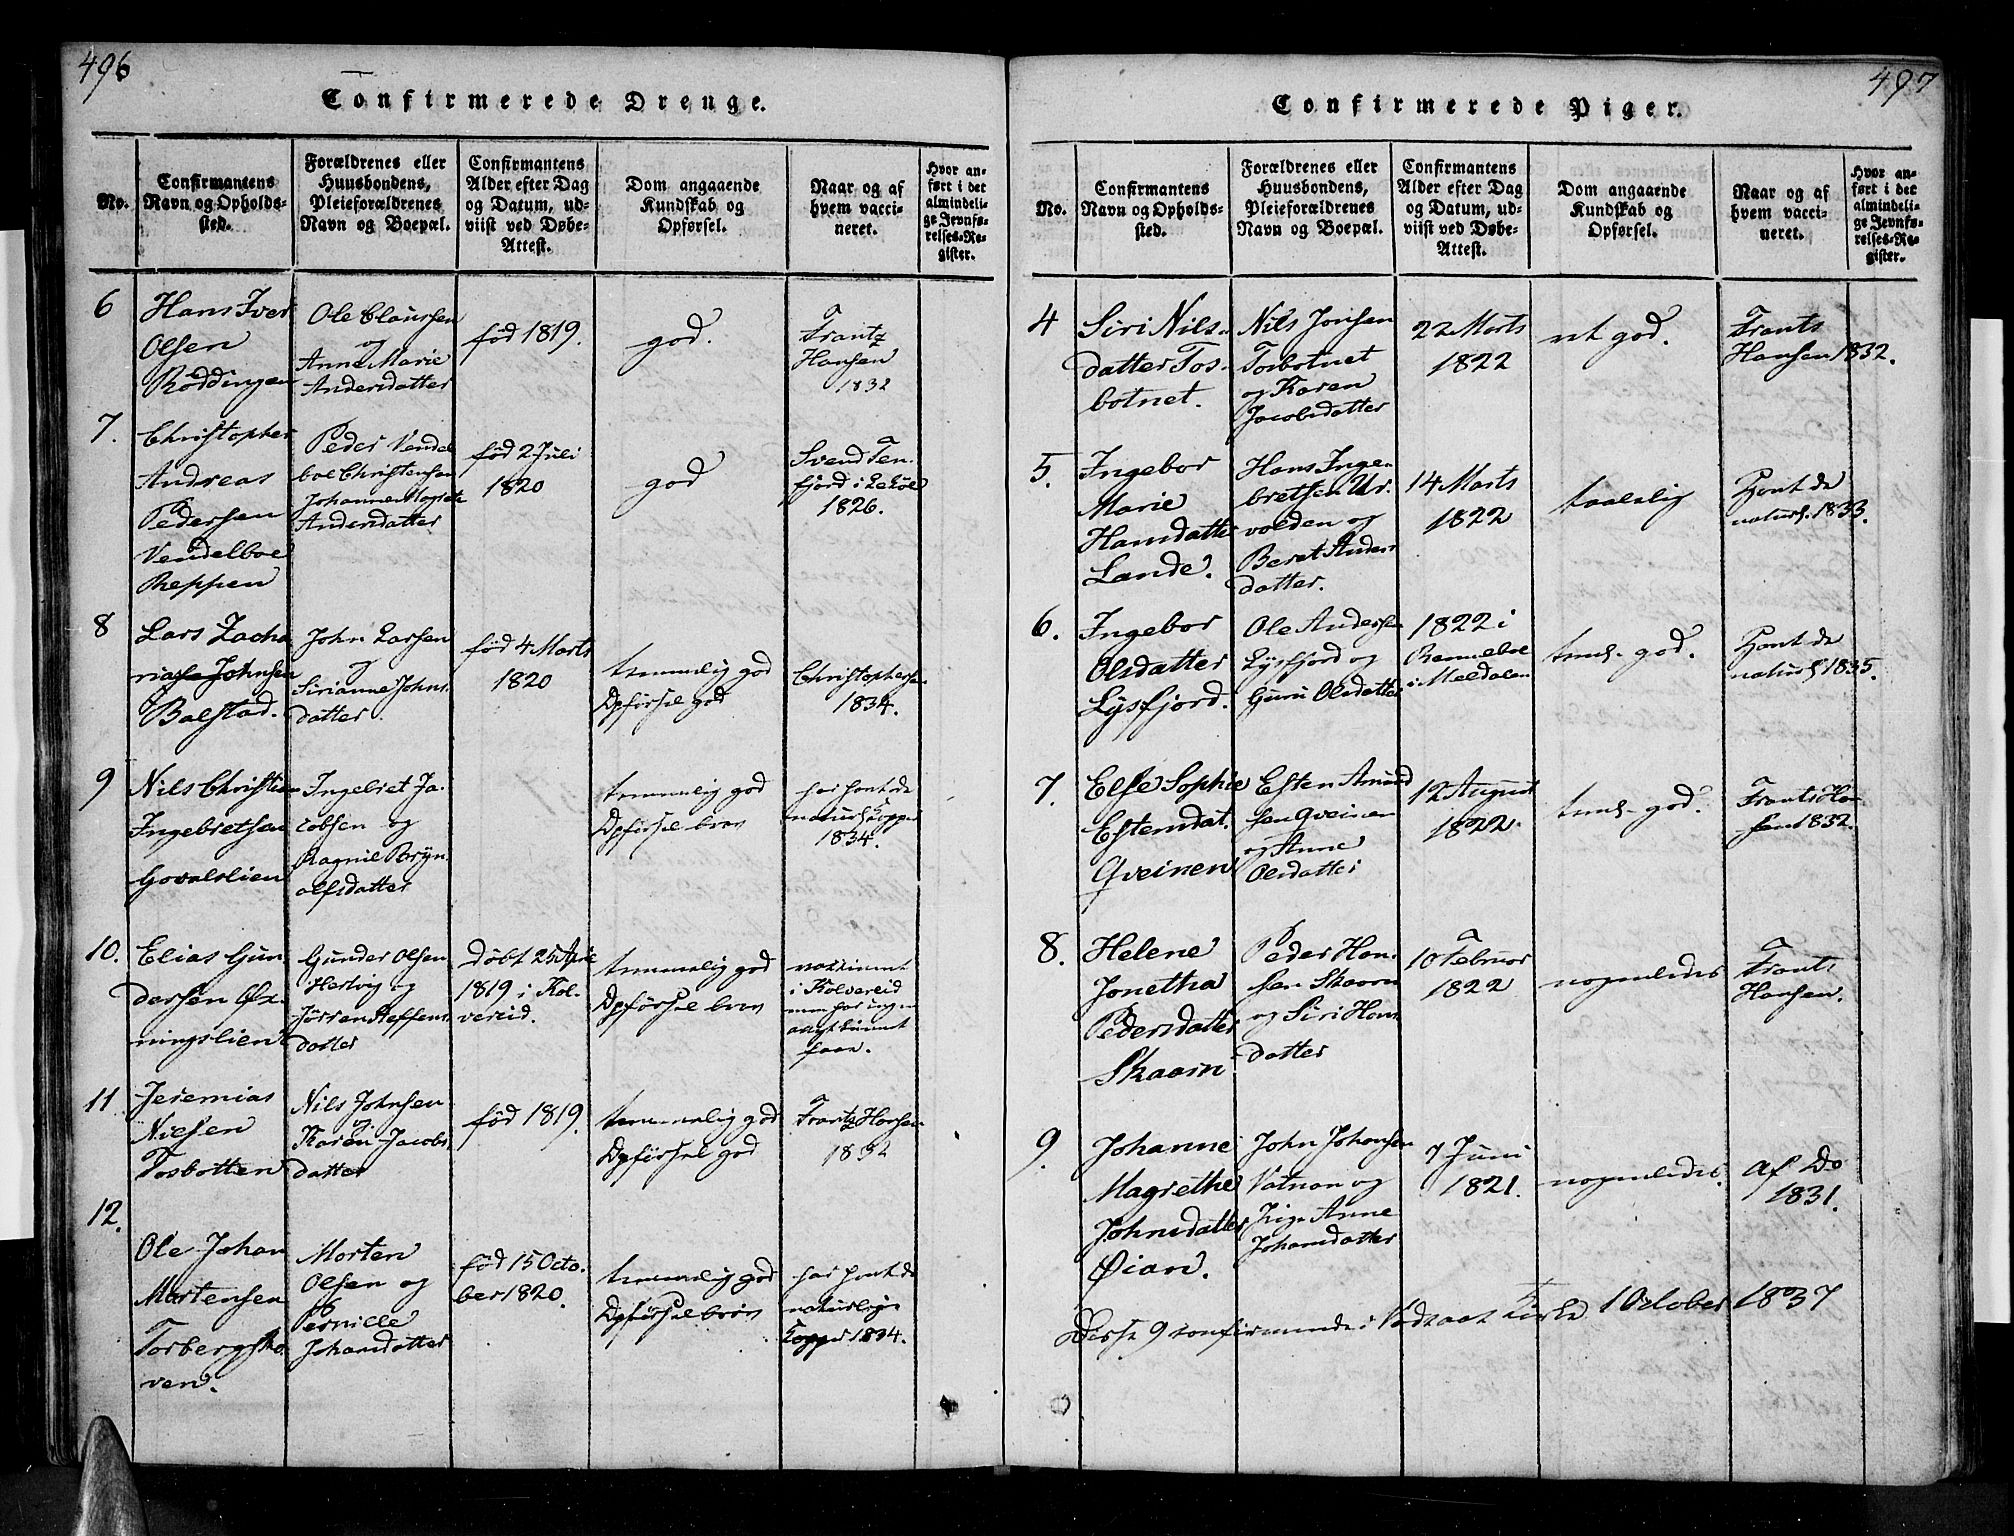 496
Confirmerede Drenge.
No.
Confirmantens
Navn og Opholds-
sted.
Forældrenes eller
Huusbondens,
Pleieforældrenes
Navn og Boepæl.
Confirmantens
Alder efter Dag
og Datum, ud-
viist ved Døbe-
Attest.
Dom angaaende
Kundskab og
Opførsel.
Naar og af
hvem vacci-
neret.
Hvor an-
ført i det
almindeli-
ge Jevnfø-
relses-Re-
gister.
6
Hans Iver
Olsen
Röddingen
Ole Claussen
og
Anne Marie
Andersdatter
fød 1819.
god.
Frantz
Hansen
1832
7.
Christopher
Andreas
Pedersen
Vendelboe
Reppen
Peder Vendel
boe Christensen
Johanne Magrete
Andersdatter
fød 2 Juli
1820
god
Svend Ten-
fjord i Lekøe
1826.
8
Lars Zacha
riase Johnsen
Balstad.
John Larsen
og
Sirianne Johns
datter.
fød 4 Marts
1820
temmelig god
Opførsel god
Christophersen
1834.
9
Nils Christian
Ingebretsen
Govalslien
Ingebret Ja-
cobsen og
Ragnil Bryn
olfsdatter
temmelig god
Opførsel brav
har havt de
naturl. Kopper
1834.
10.
Elias Gun
dersen Øx-
ningslien
Gunder Olsen
Hartvig og
Jörren Steffens
datter
Døbt 25 Apr
1819 i Kol-
vereid.
temmelig god
Opførsel brav
vaccineret
i Kolvereid
men har ingen
attest kunnet
faae.
11
Jeremias
Nilsen
Tosbotten
Nils Johnsen
og
Karen Jacobs
datter
fød 1819.
temmelig god
Opførsel god
Frantz Hansen
1832
12.
Ole Johan
Martensen
Torbergsko-
ven.
Morten
Olsen og
Pernille
Johansdatter
fød 15 Octo-
ber 1820.
temmelig god
Opførsel brav
har havt de
naturlige
Kopper 1834.
497
Confirmerede Piger.
No.
Confirmantens
Navn og Opholds-
sted.
Forældrenes eller
Huusbondens,
Pleieforældrenes
Navn og Boepæl.
Confirmantens
Alder efter Dag
og Datum, ud-
viist ved Døbe-
Attest.
Dom angaaende
Kundskab og
Opførsel.
Naar og af
hvem vacci-
neret.
Hvor an-
ført i det
almindeli-
ge Jevnfø-
relses-Re-
gister.
4
Siri Nils-
datter Tos-
botnet.
Nils Jonsen
Tosbotnet
og Karen
Jacobsdatter
22 Marts
1822
god.
Frants
Hansen 1832.
5.
Ingebor
Marie
Hansdatter
Lande.
Hans Inge-
bretsen Ur-
volden og
Beret Anders
datter.
14 Marts
1822
taalelig
Havt de
naturl. 1833.
6.
Ingebor
Olsdatter
Lysfjord.
Ole Andersen
Lysfjord og
Guru Olsdatter
1822 i
Renneboe
i Meldalen
teml. god.
Havt de
naturl 1835.
7.
Else Sophie
Estensdat.
Qveinen
Esten Amund
sen Qveinen
og Anne
Olsdatter
12 August
1822.
teml. god.
Frants Han
sen 1832.
8.
Helene
Jonetha
Pedersdatter
Skaarn
Peder Han
sen Skaarn
og Siri Hans
datter
10 Februar
1822
nogenledes
Frants
Hansen.
9.
Johanne
Magrethe
Johnsdatter
Øian.
John Johansen
Vatnan og
Anne
Johansdatter
7 Juni
1821.
nogenledes.
Af Do
1831.
Disse 9 confirmerede i Vadsaas Kirke 1 October 1837